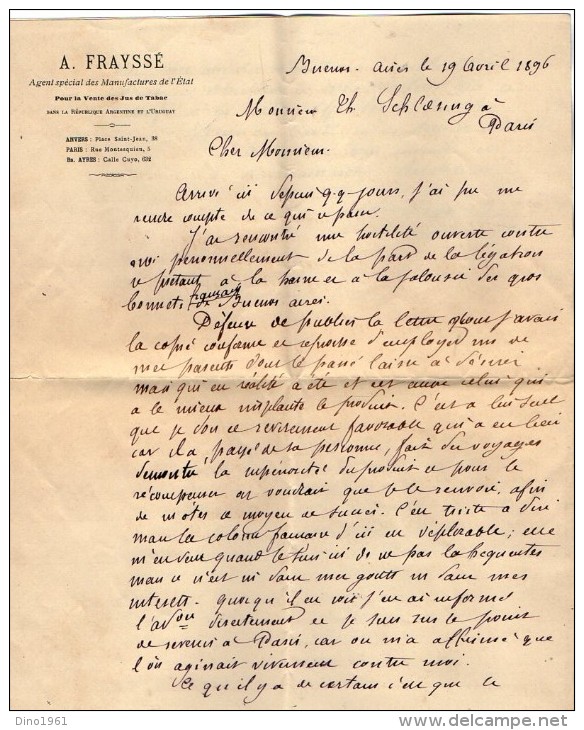 A. FRAYSSÉ
Agent spécial des Manufactures de l'État
Pour la Vente des Jus de Tabac
DANS LA RÉPUBLIQUE ARGENTINE ET L'URUGUAY
ANVERS : Place Saint-Jean, 38
PARIS : Rue Montesquieu, 5
Bs. AYRES : Calle Cuyo, 632
Buenos-aires le 19 Avril 1896
Monsieur Th Schlœsing à
Paris
Cher Monsieur.
Arrivé ici depuis q.q. jours, j'ai pu me
rendre compte de ce qui se passe.
J'ai rencontré une hostilité ouverte contre
moi personnellement de la part de la légation
se prêtant à la haine et à la jalousie des gros
bonnets français de Buenos aires.
Défense de publier la lettre dont j'avais
la copie conforme et reproche d'employer un de
mes parents dont le passé laisse à désirer
mais qui en réalité a été et est encore celui qui
a le mieux implanté le produit. C'est à lui seul
que je dois ce revirement favorable qui a eu lieu
car il a payé de sa personne, fait des voyages
démontré la supériorité du produit et pour le
récompenser on voudrait que je le renvoie, afin
de m'ôter ce moyen de succès. C'est triste à dire
mais la colonie française d'ici est déplorable ; elle
m'en veut quand je suis ici de ne pas la fréquenter
mais ce n'est ni dans mes goûts ni dans mes
intérêts. quoiqu'il en soit j'en ai informé
l'a<sup>on</sup> directement et je suis sur le point
de revenir à Paris, car on m'a affirmé que
l'on agissait vivement contre moi.
Ce qu'il y a de certain c'est que le
Dino1961
delcampe.net